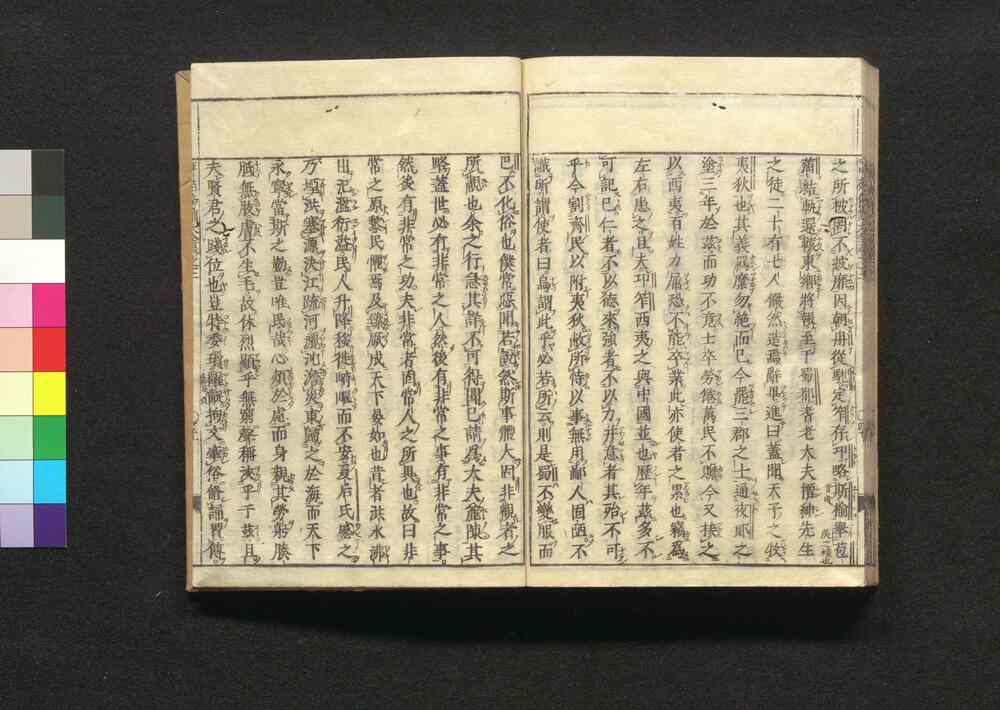 之所被罔不披靡因朝冉從駹定筰存邛略斯榆舉苞
蒲結軌還轅東鄉將報至于蜀都耆老大夫搢紳先生
之徒二十有七人儼然造焉辭畢進曰蓋聞天子之牧
夷狄也其義羈縻勿絶而已今罷三郡之士通夜郎之
塗三年於茲而功不竟士卒勞倦萬民不贍今又接之
以西夷百姓力屈恐不能卒業此亦使者之累也竊爲
左右患之且夫邛筰西夷之與中國並也歷年茲多不
可記已仁者不以德來強者不以力并意者其殆不可
乎今割齊民以附夷狄敝所恃以事無用鄙人固陋不
識所謂使者曰烏謂此乎必若所云則是蜀不變服而
巴不化俗也僕常惡聞若説然斯事體大固非觀者之
所覯也余之行急其詳不可得聞已請爲大夫麤陳其
略蓋世必有非常之人然後有非常之事有非常之事
然後有非常之功夫非常者固常人之所異也故曰非
常之原黎民懼焉及臻厥成天下晏如也昔者洪水沸
出氾濫衍溢民人升降移徙崎嶇而不安夏后氏慼之
乃堙洪塞源決江疏河灑沈澹災東歸之於海而天下
永寧當斯之勤豈唯民哉心煩於慮而身親其勞躬腠
胝無胈膚不生毛故休烈顯乎無窮聲稱浹乎于茲且
夫賢君之踐位也豈特委瑣齷齪拘文牽俗脩誦習傳